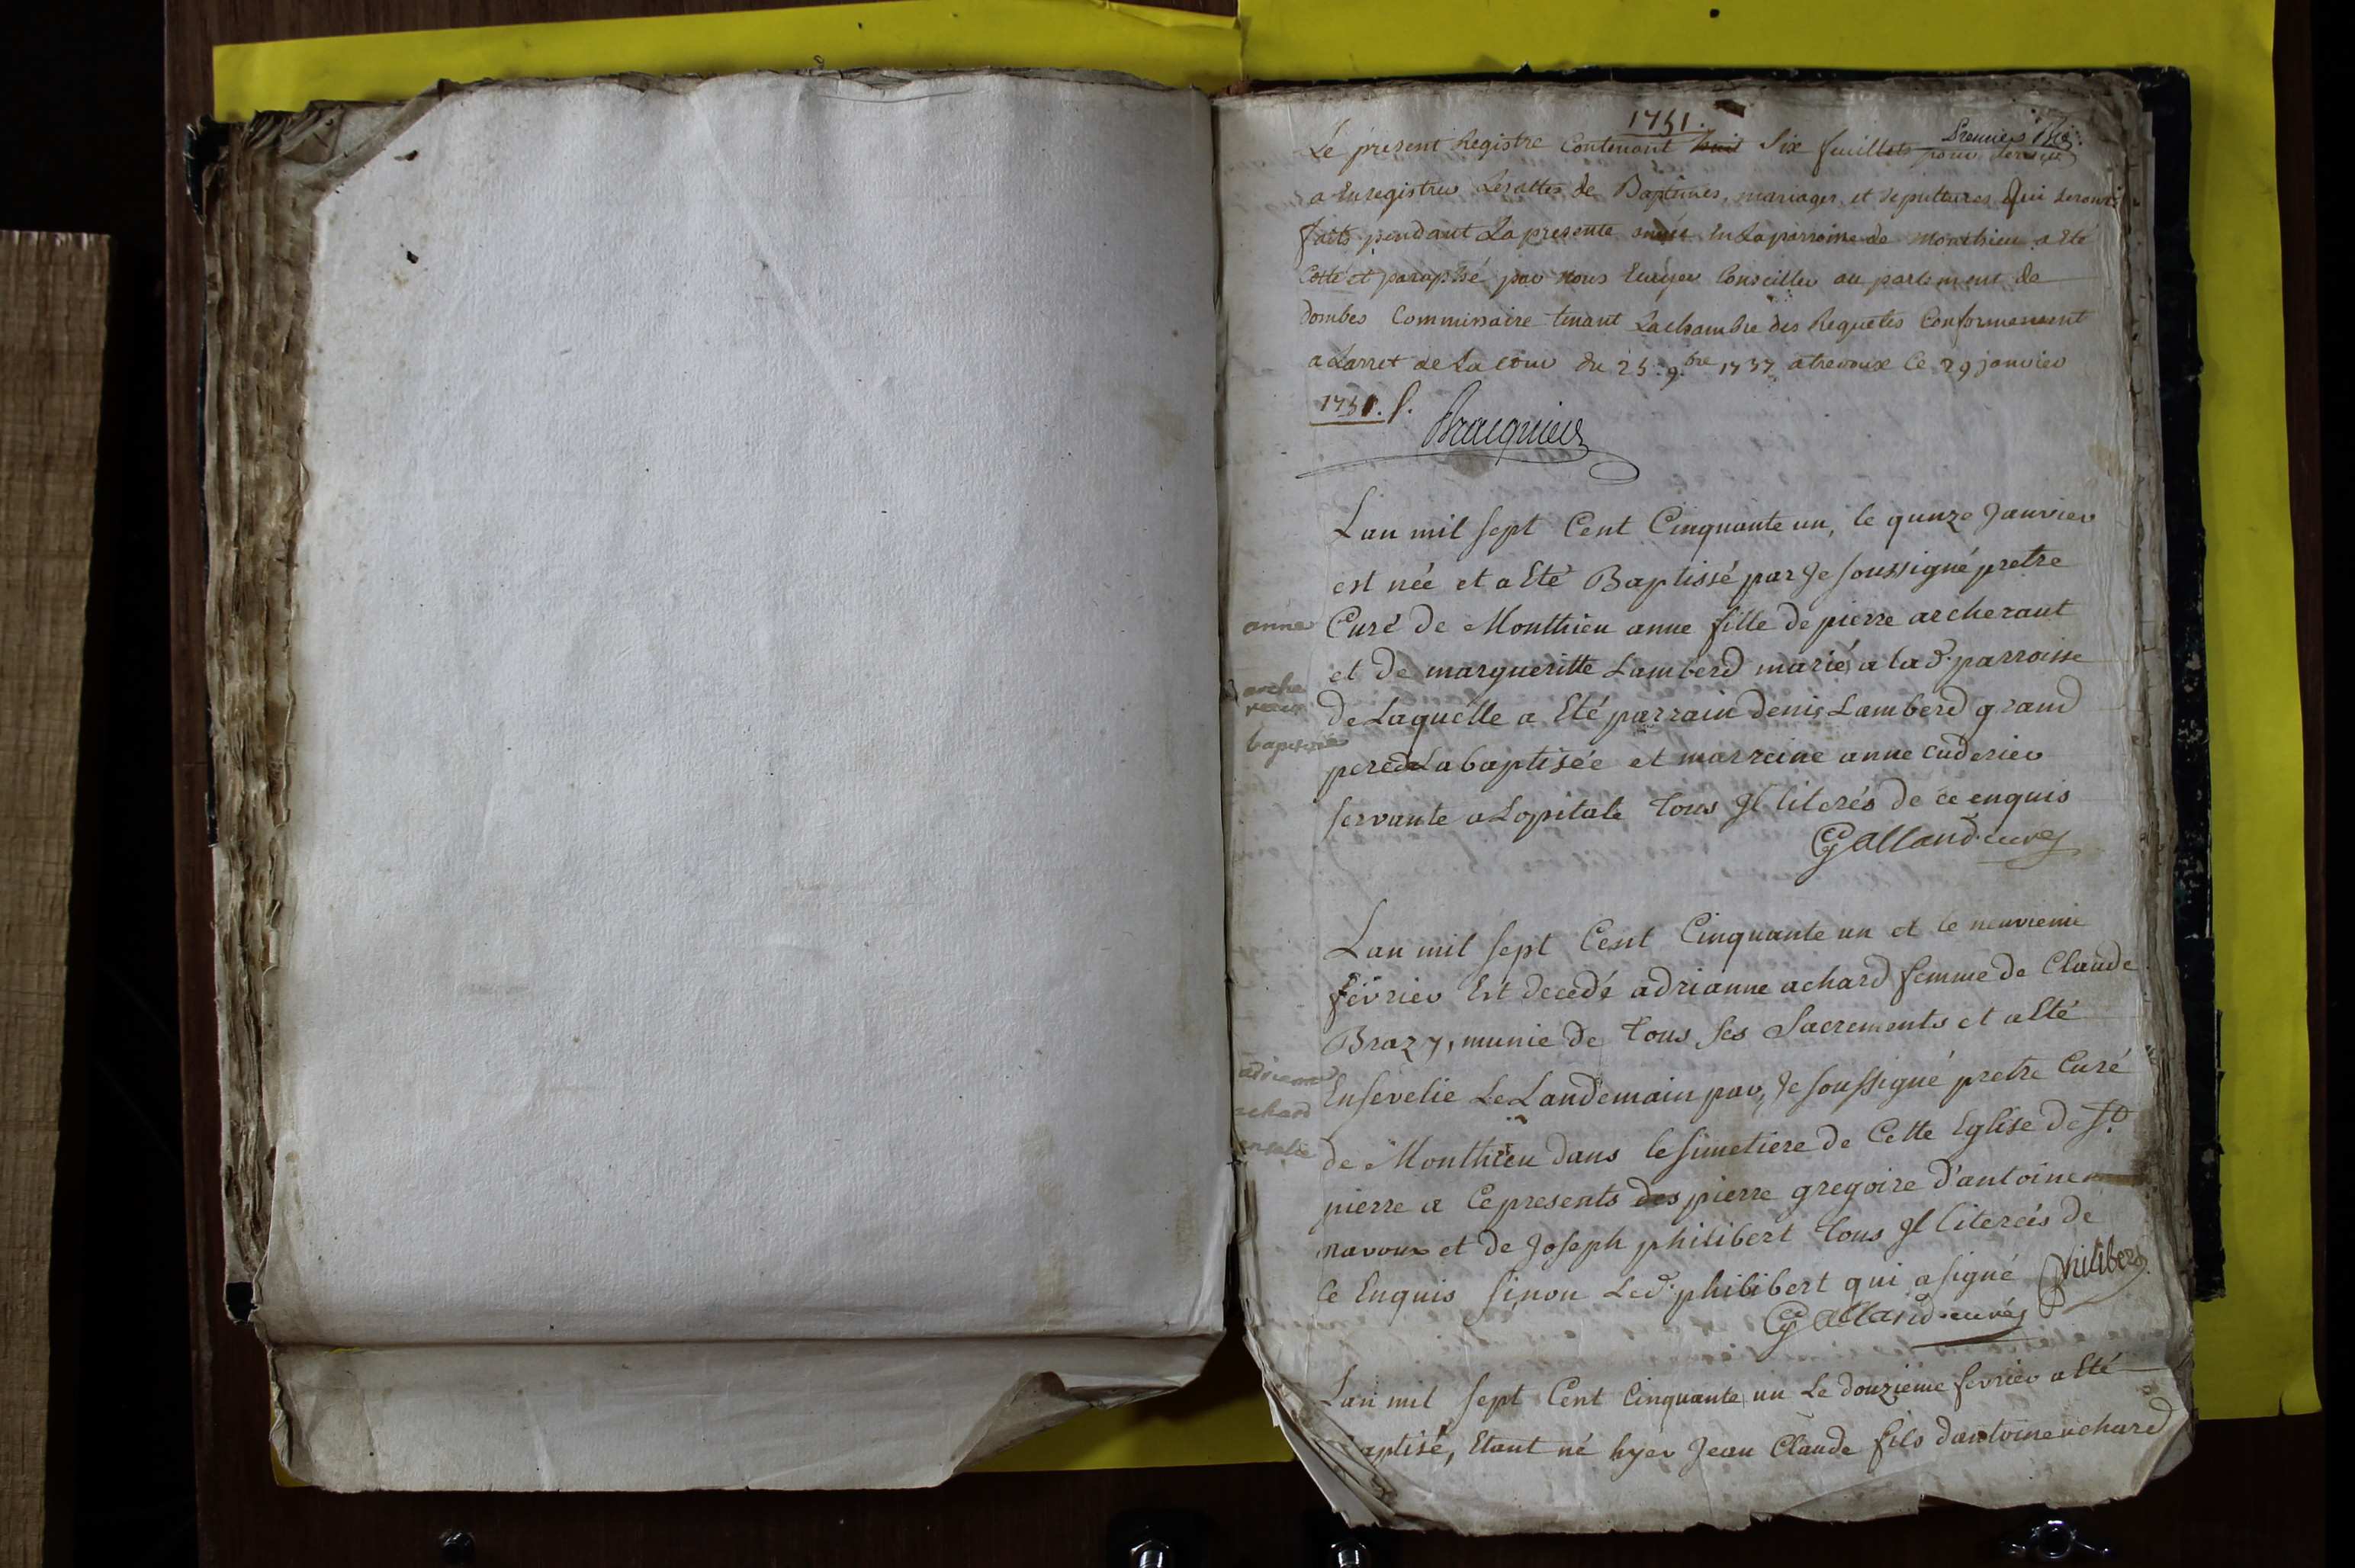 1751.
Premier
Le present Registre Contenant huit Six feuillets pour servir
a Enregistrer Les actes de Baptemes, mariages, et sepultures Qui seront
faits pendant La presente année En La parroisse de Monthieu a Eté
Cotté et paraphé par Nous Ecuyer Conseiller au parlement de
dombes Commissaire tenant La chambre des Requetes Conformement
a Larret de La Cour du 25. 9.bre 1737 a trevoux Ce 29 janvier
1751. /.
Lan mil sept Cent Cinquante un, le qunze Janvier
est née et a Eté Baptissé par Je soussigné pretre
anne
Curé de Monthieu anne fille de pierre archeraut
et de margueritte Lamberd mariés a lad. parroisse
arche
de Laquelle a Eté parrain denis Lamberd grand
baptisée
pere de La baptisée et marreine anne cuderier
servante a Lopitale tous Il literés de ce enquis
Galland curé
Lan mil sept Cent Cinquante un et le neuvieme
fevrier Est decedé adrianne achard femme de Claude
Brazy, munie de tous ses Sacrements et a Eté
adrienne
Ensevelie Le Landemain par Je soussigné pretre Curé
achard
de Monthieu dans le simetiere de Cette Eglise de St.
pierre a Ce presents des pierre gregoire d'antoine
navoux et de Joseph philibert tous Il litereés de
Ce Enquis sinon Led. philibert qui a signé Philiberd
Galland curé
Lan mil sept Cent Cinquante un Le douzieme fevrier a Eté
aptisé, Etant né hyer Jean Claude fils dantoine achard